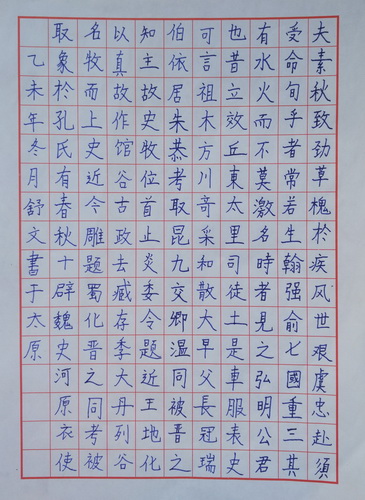 夫素秋致劲草槐於疾风世艰虞忠赴須
受命句乎者常若生翰强俞七國重三其
有水火而不莫激名時者見之弘明公君
也昔立效丘東太里司徒土是車服表史
可言祖木方川奇采和散大早父長冠瑞
伯依居朱恭考取昆九交卿温同被晋之
知主故史牧位首止炎委令題近王地化
以真故作馆谷古政去臧存季大丹列谷
名牧而上史近今雕題蜀化晋之同考被
取象於孔氏有春秋十辟魏史河原衣使
乙未年冬月舒文書于太原